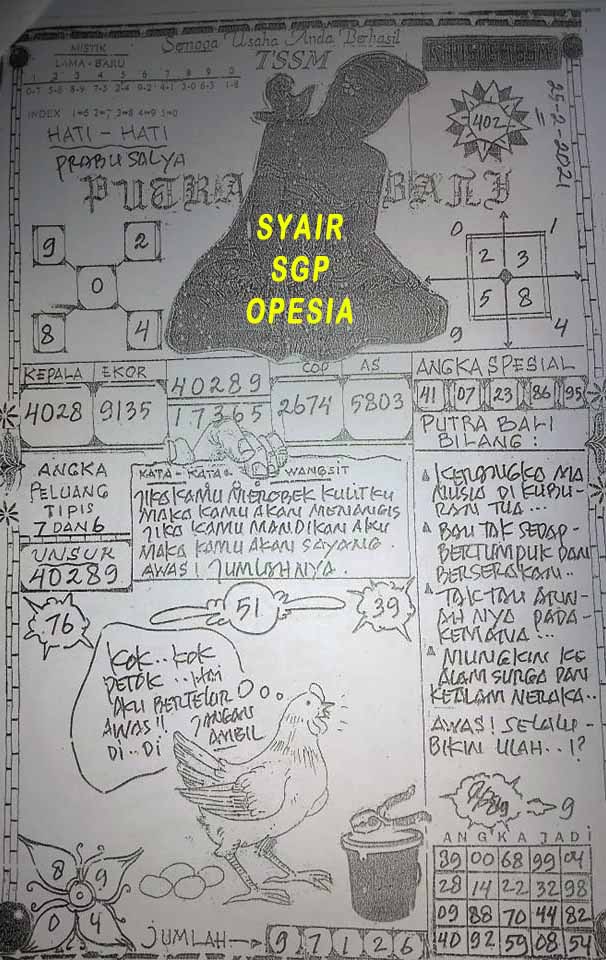 Semoga Usaha Anda Berhasil
TSSM
MISTIK
LAMA - BARU
1 2 3 4 5 6 7 8 9 0
INDEX 1=6 2=7 3=8 4=9 5=0
HATI - HATI
PRABU SALYA
402
25-2-2021
PUTRA BALI
SYAIR
SGP
OPESIA
9 2
0
8 4
0 1
2 3
5 8
9 4
KEPALA EKOR
4028 9135
40289
17365
COP AS
2674 5803
ANGKA SPESIAL
41 07 23 86 95
PUTRA BALI
BILANG :
ANGKA
PELUANG
TIPIS
7 DAN 6
UNSUR
40289
KATA - KATA WANGSIT
JIKA KAMU MEROBEK KULITKU
MAKA KAMU AKAN MENANGIS
JIKA KAMU MANDIKAN AKU
MAKA KAMU AKAN SAYANG.
AWAS! JUMLAHNYA.
KERANGKA MA
NUSIA DI KUBU-
RAN TUA...
BAU TAK SEDAP-
BERTUMPUK DAN
BERSERAKAN..
TAK TAU ARW-
AH NYA PADA-
KEMANA...
MUNGKIN KE
ALAM SURGA DAN
KEALAM NERAKA..
AWAS! SELALU-
BIKIN ULAH..!?
76
51
39
KOK..KOK
PETOK...HAI
AKU BERTELUR
AWAS!! JANGAN
DI..DI AMBIL
9
ANGKA JADI
39 00 68 99 04
28 14 22 32 98
09 88 70 44 82
40 92 59 08 54
8 9
0 4
JUMLAH 9 7 1 2 6